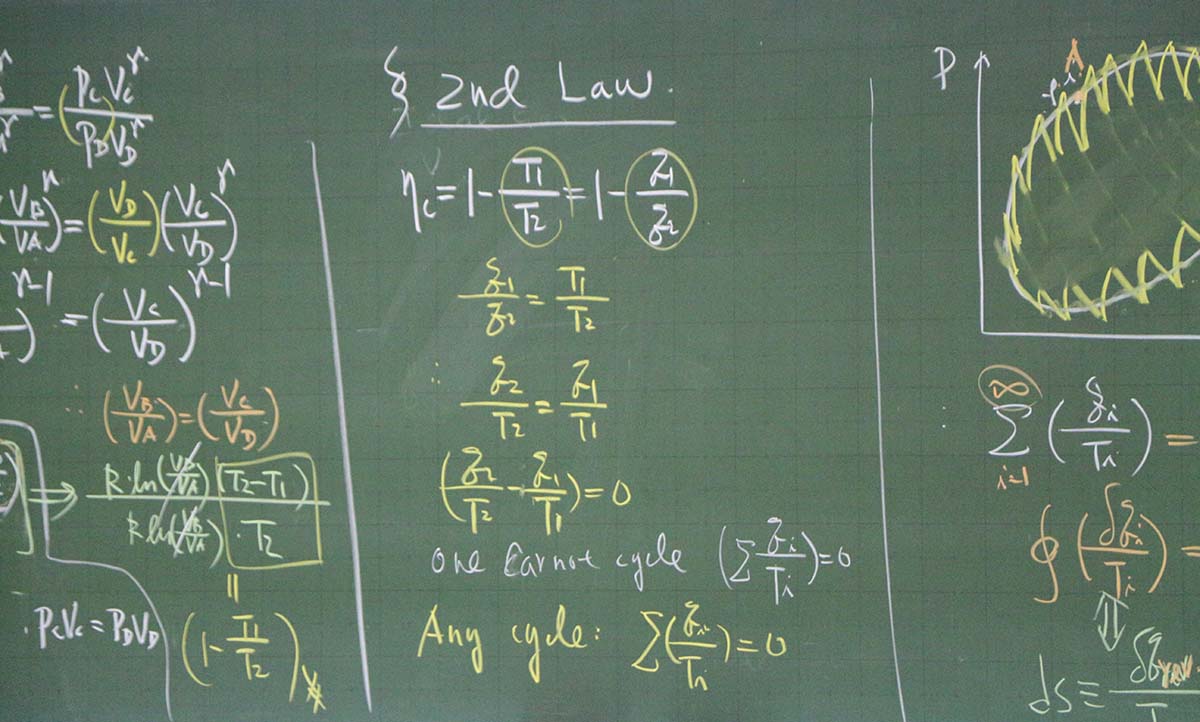 = (P_C V_C^r / P_D V_D^r)
(V_B/V_A)^r = (V_D/V_C) (V_C/V_D)^r
r-1 = (V_C/V_D)^{r-1}
∴ (V_B/V_A) = (V_C/V_D)
⇒ R·ln(V_B/V_A) (T2-T1) / R ln(V_B/V_A) · T2
||
P_C V_C = P_D V_D (1 - T1/T2)
§ 2nd Law.
η_c = 1 - T1/T2 = 1 - q1/q2
q1/q2 = T1/T2
∴ q2/T2 = q1/T1
(q2/T2 - q1/T1) = 0
one Carnot cycle (Σ q_i/T_i) = 0
Any cycle: Σ (q_i/T_i) = 0
P
∴ Σ_{i=1}^{∞} (q_i/T_i) =
∮ (δq_i/T_i) =
⇕
ds ≡ δq_rev / T